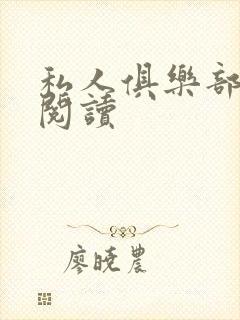 私人俱樂部
閱讀
廖曉農